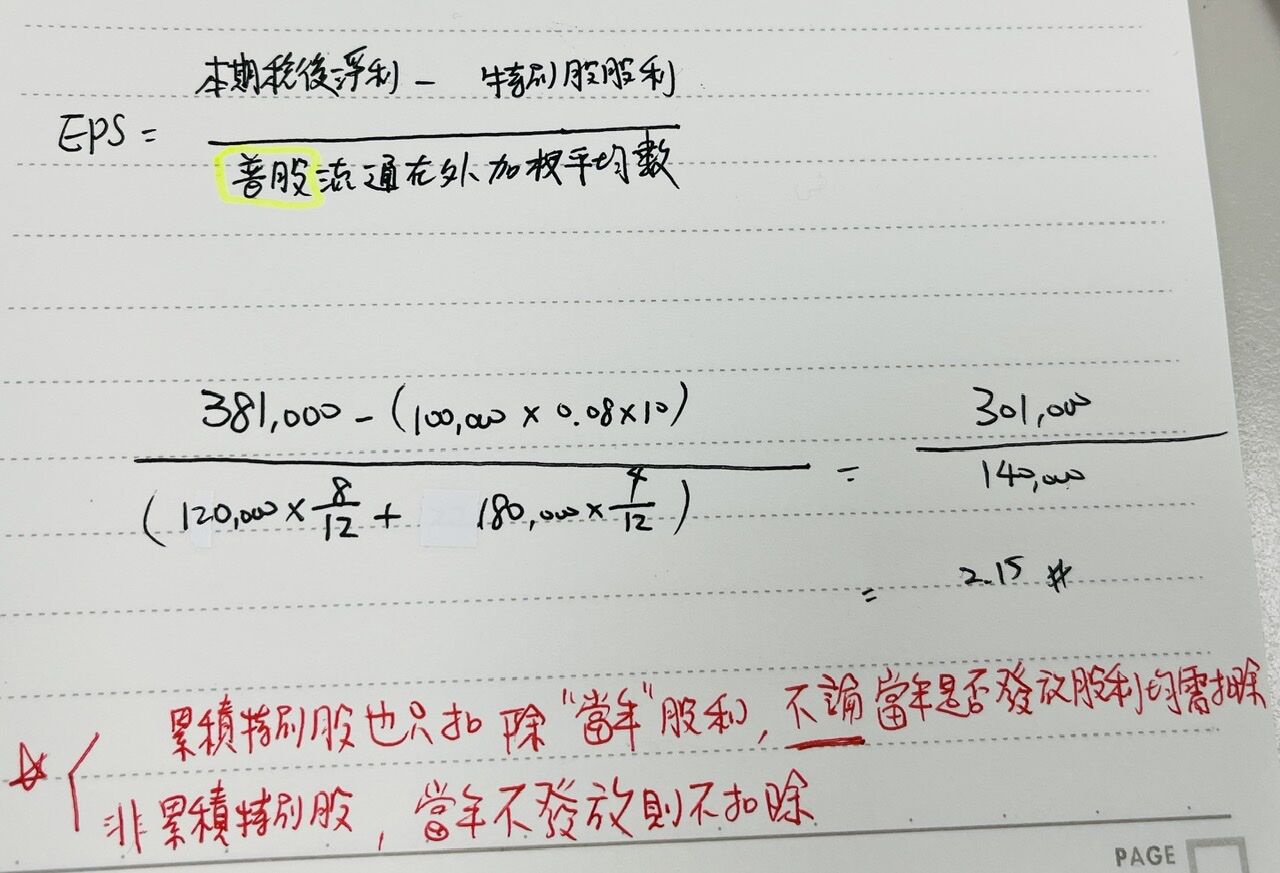 本期稅後淨利 - 特別股股利
EPS =
普股流通在外加權平均數
381,000 - (100,000 × 0.08×10)
(120,000 × 8/12 + 180,000 × 4/12)
=
301,000
140,000
= 2.15 #
☆ 累積特別股也只扣除"當年"股利, 不論當年是否發放股利均需扣除
非累積特別股, 當年不發放則不扣除
PAGE